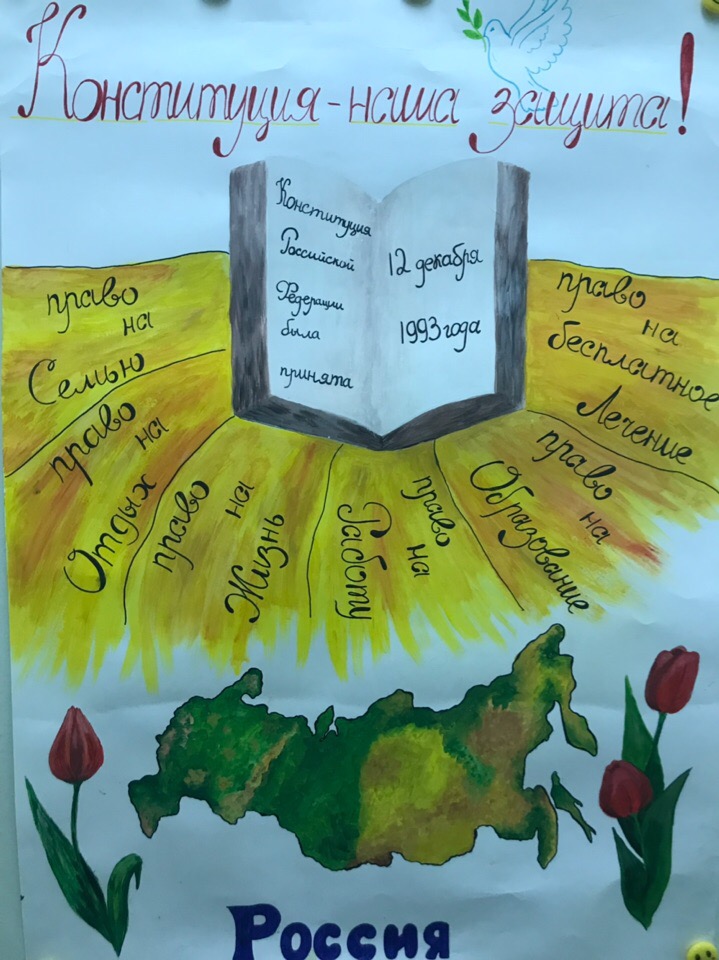 Конституция - наша защита!
Конституция
Российской
Федерации
была
принята
12 декабря
1993 года
право
на
Семью
право
на
Отдых
право
на
Жизнь
право
на
Работу
право
на
Образование
право
на
бесплатное
Лечение
Россия